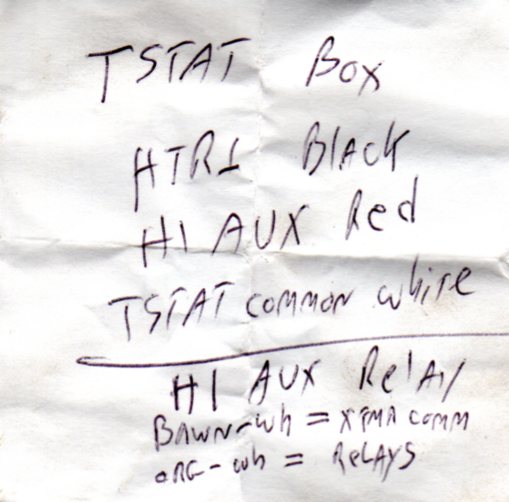 TSTAT Box
HTR1 Black
HI AUX Red
TSTAT common white
HI AUX Relay
BRWN-wh = XFMR COMM
ORG-wh = RELAYS